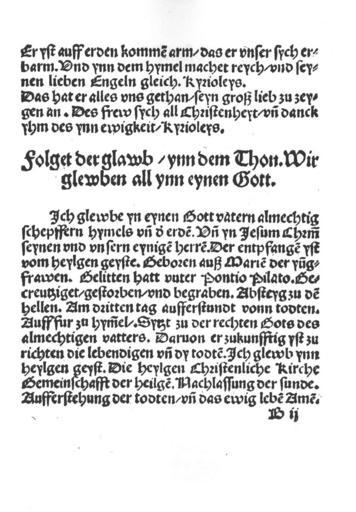 Er yst auff erden kommẽ arm/das er vnser sych er⸗
barm. Vnd ynn dem hymel machet reych/vnd sey⸗
nen lieben Engeln gleich. Kyrioleys.
Das hat er alles vns gethan/seyn groß lieb zu zey⸗
gen an. Des frew sych all Christenheyt/vñ danck
yhm des ynn ewigkeit/Kyrioleys.
Folget der glawb/ynn dem Thon. Wir
glewben all ynn eynen Gott.
Jch glewbe yn eynen Gott vatern almechtig
schepffern hymels vñ d̕ erdẽ. Vñ yn Jesum Chrm̃
seynen vnd vnsern eynigẽ herrẽ. Der entpfangẽ yst
vom heylgen geyste. Geboren auß Mariẽ der yũg⸗
frawen. Gelitten hatt vnter Pontio Pilato. Ge⸗
creutziget/gestorben/vnd begraben. Absteyg zu dẽ
hellen. Am dritten tag aufferstundt vonn todten.
Auff fur zu hym̃el. Sytzt zu der rechten Gots des
almechtigen vatters. Daruon er zukunfftig yst zu
richten die lebendigen vñ dy todtẽ. Jch glewb ynn
heylgen geyst. Die heylgen Christenliche Kirche
Gemeinschafft der heilgẽ. Nachlassung der sunde.
Aufferstehung der todten/vñ das ewig lebẽ Amẽ.
B ij